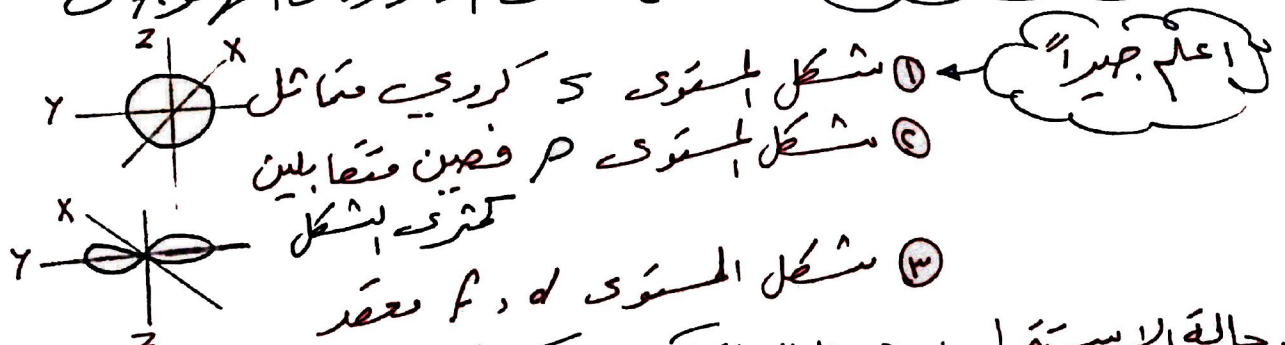 اعلم جيداً
① شكل المستوى S كروي متماثل
② شكل المستوى P فصين متقابلين
كمثرى الشكل
③ شكل المستوى d , f معقد
Z
X
Y
X
Y
Z